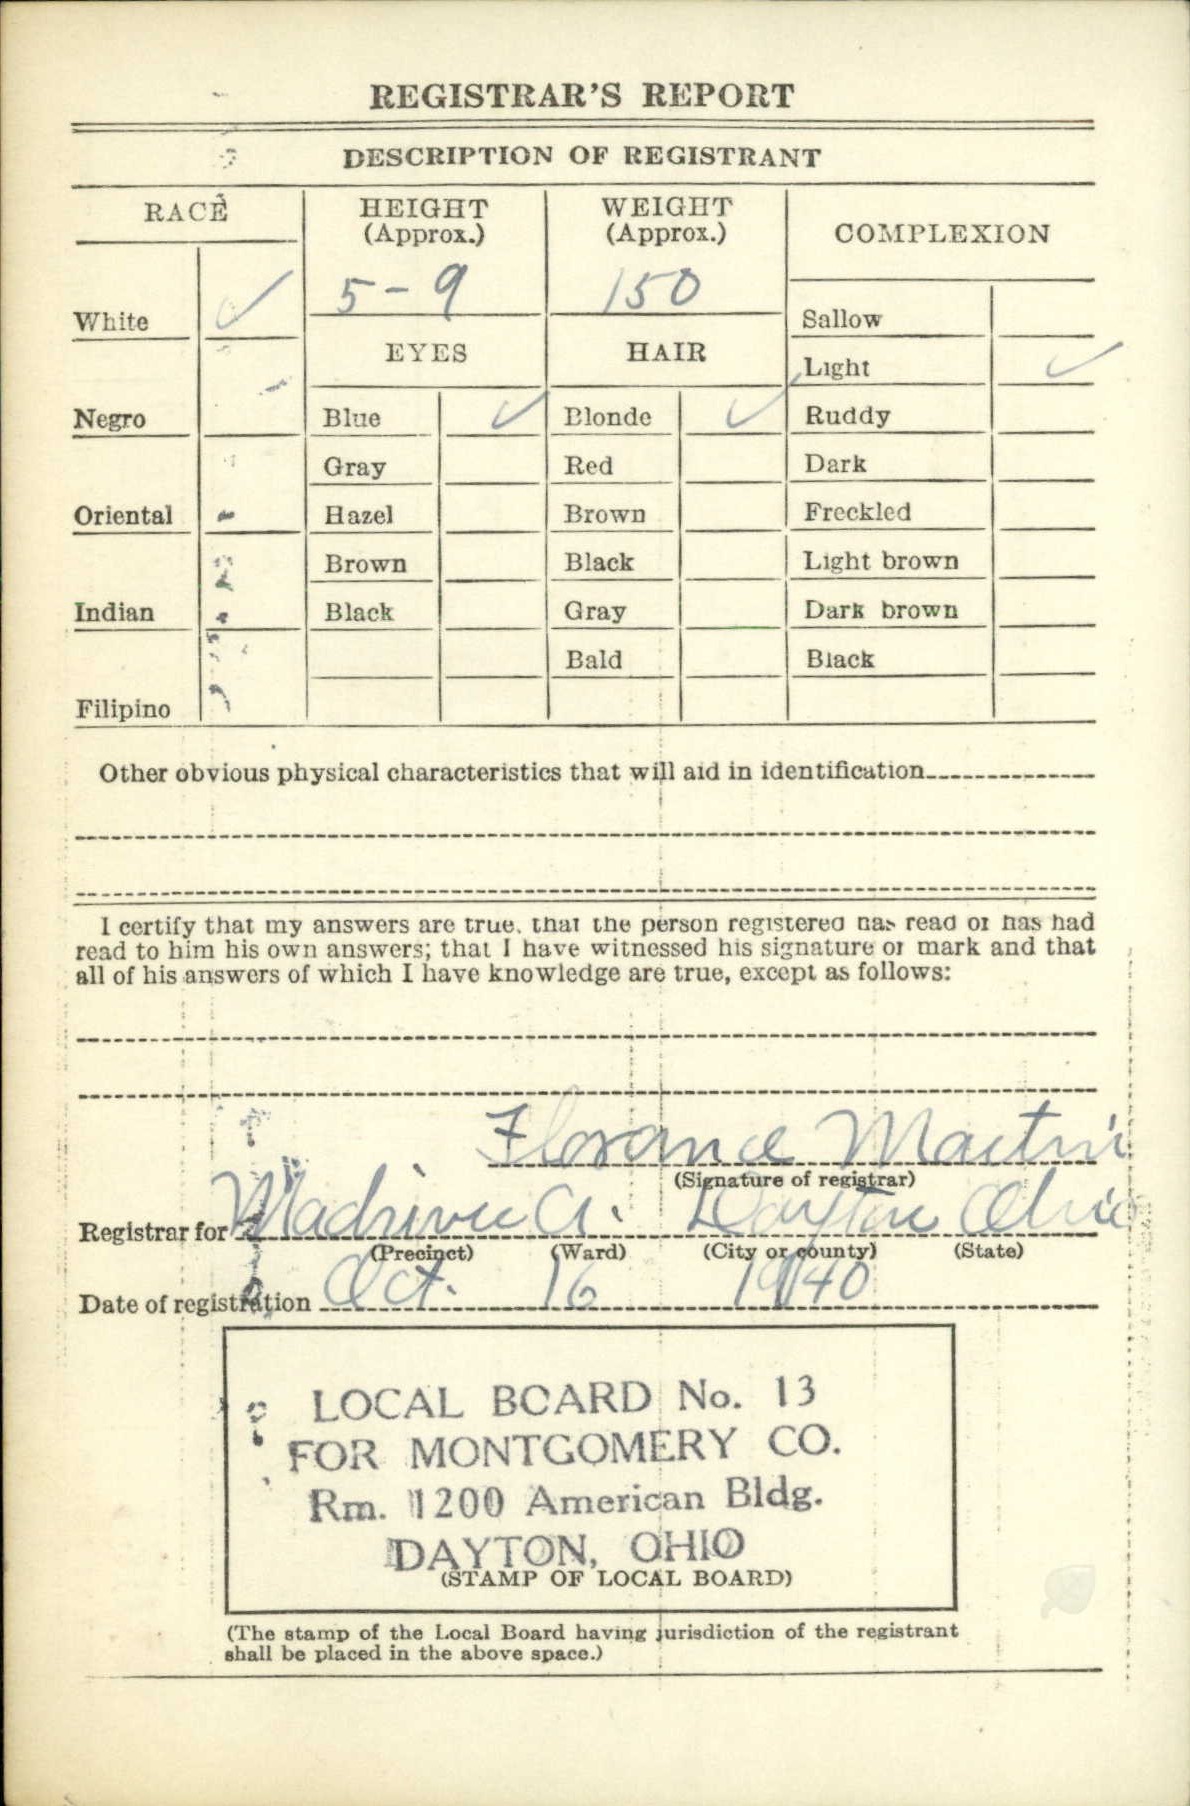 REGISTRAR'S REPORT
DESCRIPTION OF REGISTRANT
RACE
HEIGHT
(Approx.)
WEIGHT
(Approx.)
COMPLEXION
White ✓
5-9
150
Sallow
EYES
HAIR
Light ✓
Negro
Blue ✓
Blonde ✓
Ruddy
Gray
Red
Dark
Oriental
Hazel
Brown
Freckled
Brown
Black
Light brown
Indian
Black
Gray
Dark brown
Bald
Black
Filipino
Other obvious physical characteristics that will aid in identification
I certify that my answers are true, that the person registered has read or has had
read to him his own answers; that I have witnessed his signature or mark and that
all of his answers of which I have knowledge are true, except as follows:
Florance Martin
(Signature of registrar)
Registrar for Madriver A. Dayton Ohio
(Precinct) (Ward) (City or county) (State)
Date of registration Oct. 16 1940
LOCAL BOARD No. 13
FOR MONTGOMERY CO.
Rm. 1200 American Bldg.
DAYTON, OHIO
(STAMP OF LOCAL BOARD)
(The stamp of the Local Board having jurisdiction of the registrant
shall be placed in the above space.)